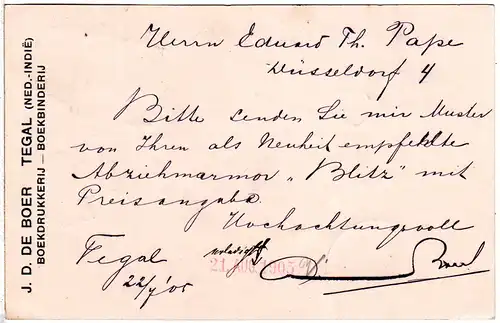 J. D. DE BOER TEGAL (NED.-INDIË)
BOEKDRUKKERIJ — BOEKBINDERIJ
Herrn Eduard Th. Pape
Düsseldorf 4
Bitte senden Sie mir Muster
von Ihren als Neuheit empfehlte
Abziehmarmor „Blitz" mit
Preisangabe.
Hochachtungsvoll
Tegal
22/7 '05
erledigt
21 AUG. 1905
Boer